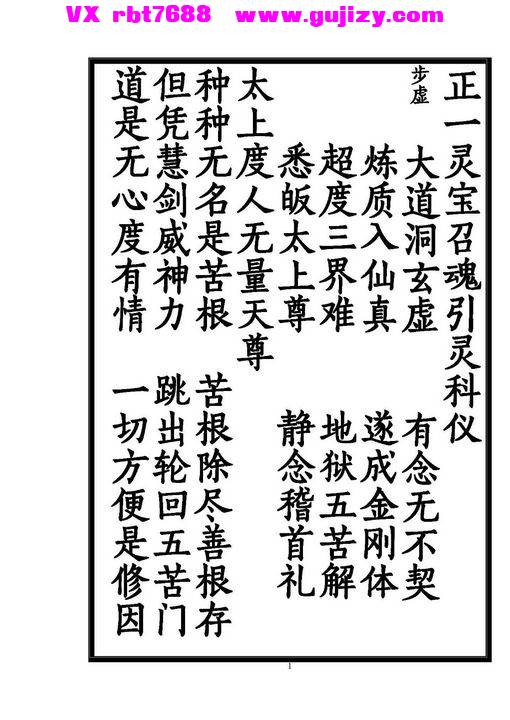 VX rbt7688 www.gujizy.com
正一灵宝召魂引灵科仪
步虚
大道洞玄虚 有念无不契
炼质入仙真 遂成金刚体
超度三界难 地狱五苦解
悉皈太上尊 静念稽首礼
太上度人无量天尊
种种无名是苦根 苦根除尽善根存
但凭慧剑威神力 跳出轮回五苦门
道是无心度有情 一切方便是修因
1